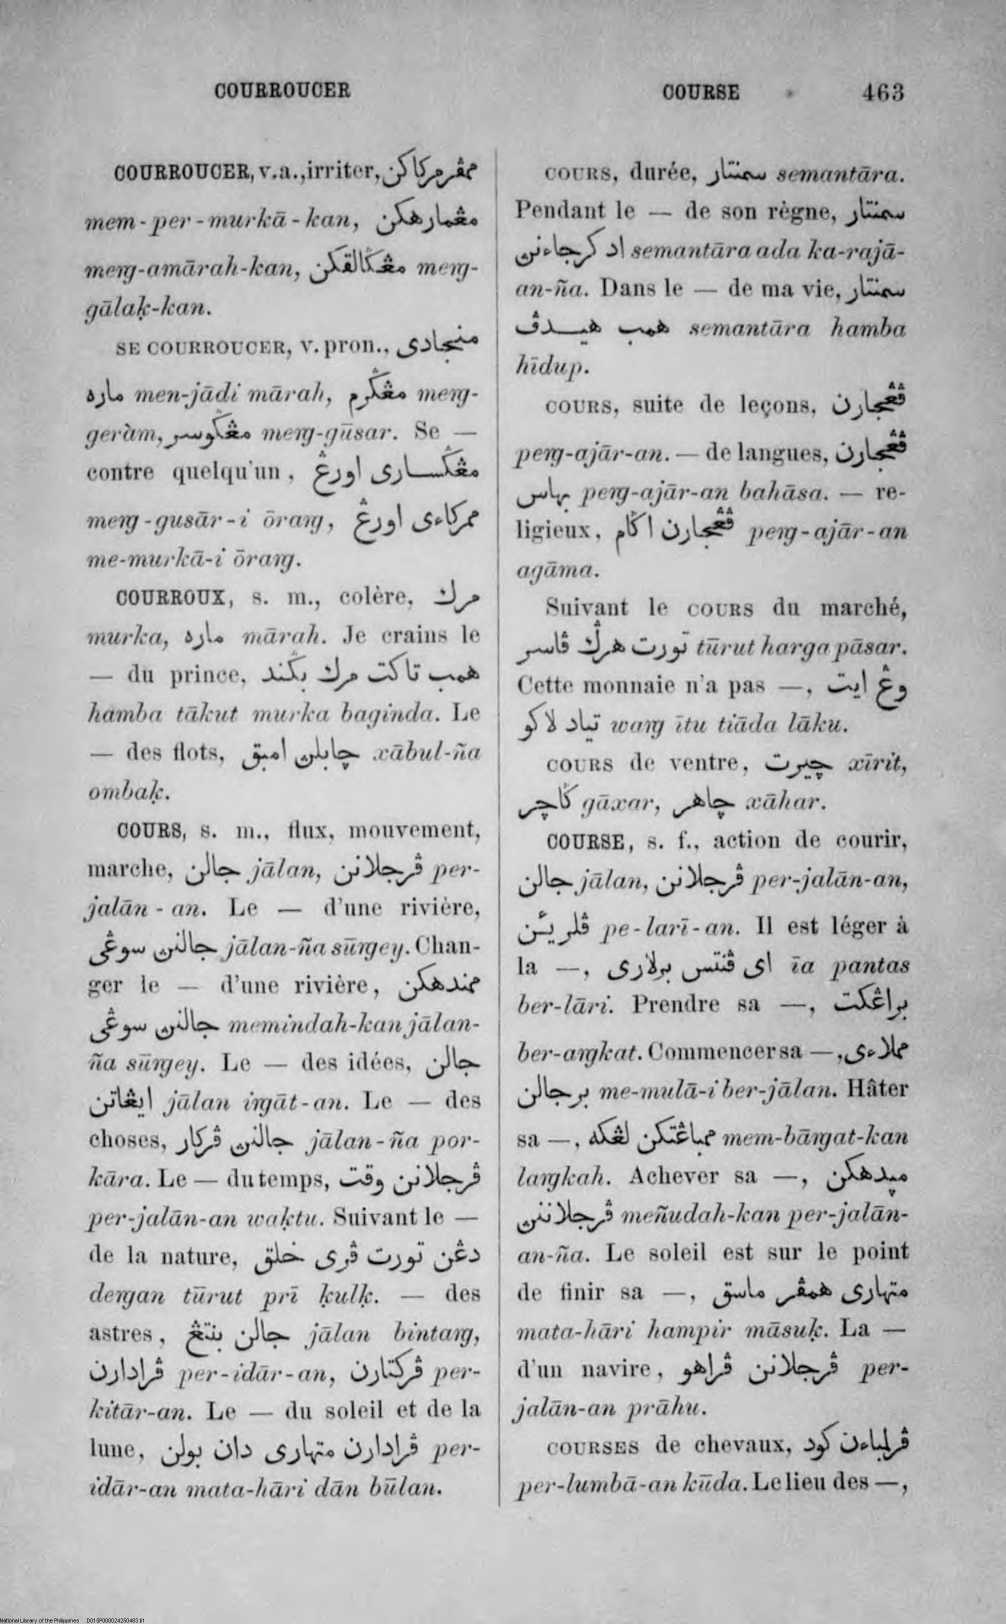 COURROUCER
COURSE 463
COURROUCER, v.a., irriter, ممڤرمركاكن
mem-per-murkā-kan, مڠمارهكن
merg-amārah-kan, مڠݢالقكن merg-
gālaḳ-kan.
SE COURROUCER, v. pron., منجادى
ماره men-jādi mārah, مڠݢرم merg-
geràm, مڠݢوسر merg-gūsar. Se —
contre quelqu'un, مڠݢسارى اورڠ
merg-gusār-i ōrarg, ممركاءى اورڠ
me-murkā-i ōrarg.
COURROUX, s. m., colère, مرك
murka, ماره mārah. Je crains le
— du prince, همب تاكت مرك بݢند
hamba tākut murka baginda. Le
— des flots, چابلن امبق xābul-ña
ombaḳ.
COURS, s. m., flux, mouvement,
marche, جالن jālan, ڤرجلانن per-
jalān-an. Le — d'une rivière,
جالنن سوڠى jālan-ña sūrgey. Chan-
ger le — d'une rivière, ممندهكن
جالنن سوڠى memindah-kan jālan-
ña sūrgey. Le — des idées, جالن
ايڠاتن jālan irgāt-an. Le — des
choses, جالنن ڤركار jālan-ña por-
kāra. Le — du temps, ڤرجلانن وقت
per-jalān-an waḳtu. Suivant le —
de la nature, دڠن تورت ڤرى خلق
dergan tūrut prī ḳulḳ. — des
astres, جالن بنتڠ jālan bintarg,
ڤرادارن per-idār-an, ڤركتارن per-
kitār-an. Le — du soleil et de la
lune, ڤرادارن متهارى دان بولن per-
idār-an mata-hāri dān būlan.
COURS, durée, سمنتار semantāra.
Pendant le — de son règne, سمنتار
اد كرجاءنن semantāra ada ka-rajā-
an-ña. Dans le — de ma vie, سمنتار
همب هيدڤ semantāra hamba
hīdup.
COURS, suite de leçons, ڤڠجارن
perg-ajār-an. — de langues, ڤڠجارن
بهاس perg-ajār-an bahāsa. — re-
ligieux, ڤڠجارن اݢام perg-ajār-an
agāma.
Suivant le COURS du marché,
تورت هرݢ ڤاسر tūrut harga pāsar.
Cette monnaie n'a pas —, وڠ ايت
تياد لاكو warg ītu tiāda lāku.
COURS de ventre, چيرت xīrit,
ݢاچر gāxar, چاهر xāhar.
COURSE, s. f., action de courir,
جالن jālan, ڤرجلانن per-jalān-an,
ڤلريئن pe-larī-an. Il est léger à
la —, اى ڤنتس برلارى īa pantas
ber-lāri. Prendre sa —, براڠكت
ber-argkat. Commencer sa —, مملاءى
برجالن me-mulā-i ber-jālan. Hâter
sa —, ممباڠتكن لڠكه mem-bārgat-kan
largkah. Achever sa —, ميدهكن
ڤرجلاننن meñudah-kan per-jalān-
an-ña. Le soleil est sur le point
de finir sa —, متهارى همڤر ماسق
mata-hāri hampir māsuḳ. La —
d'un navire, ڤرجلانن ڤراهو per-
jalān-an prāhu.
COURSES de chevaux, ڤرلمباءن كود
per-lumbā-an kūda. Le lieu des —,
National Library of the Philippines